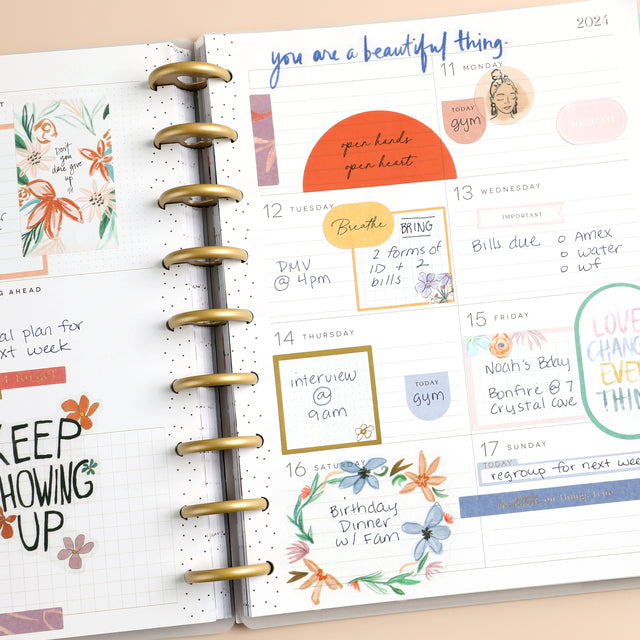 Don't
you
dare give
up
G AHEAD
al plan for
xt week
KEEP
HOWING
UP
2024
you are a beautiful thing.
open hands
open heart
11 MONDAY
TODAY
gym
MEDITATE
12 TUESDAY
Breathe
DMV
@ 4pm
BRING
2 forms of
ID + 2
bills
13 WEDNESDAY
IMPORTANT
Bills due
Amex
water
wf
14 THURSDAY
interview
@
9am
TODAY
gym
15 FRIDAY
Noah's Bday
Bonfire @ 7
Crystal Cove
LOVE
CHANG
EVER
THIN
16 SATURDAY
Birthday
Dinner
w/ Fam
17 SUNDAY
TODAY
regroup for next wee